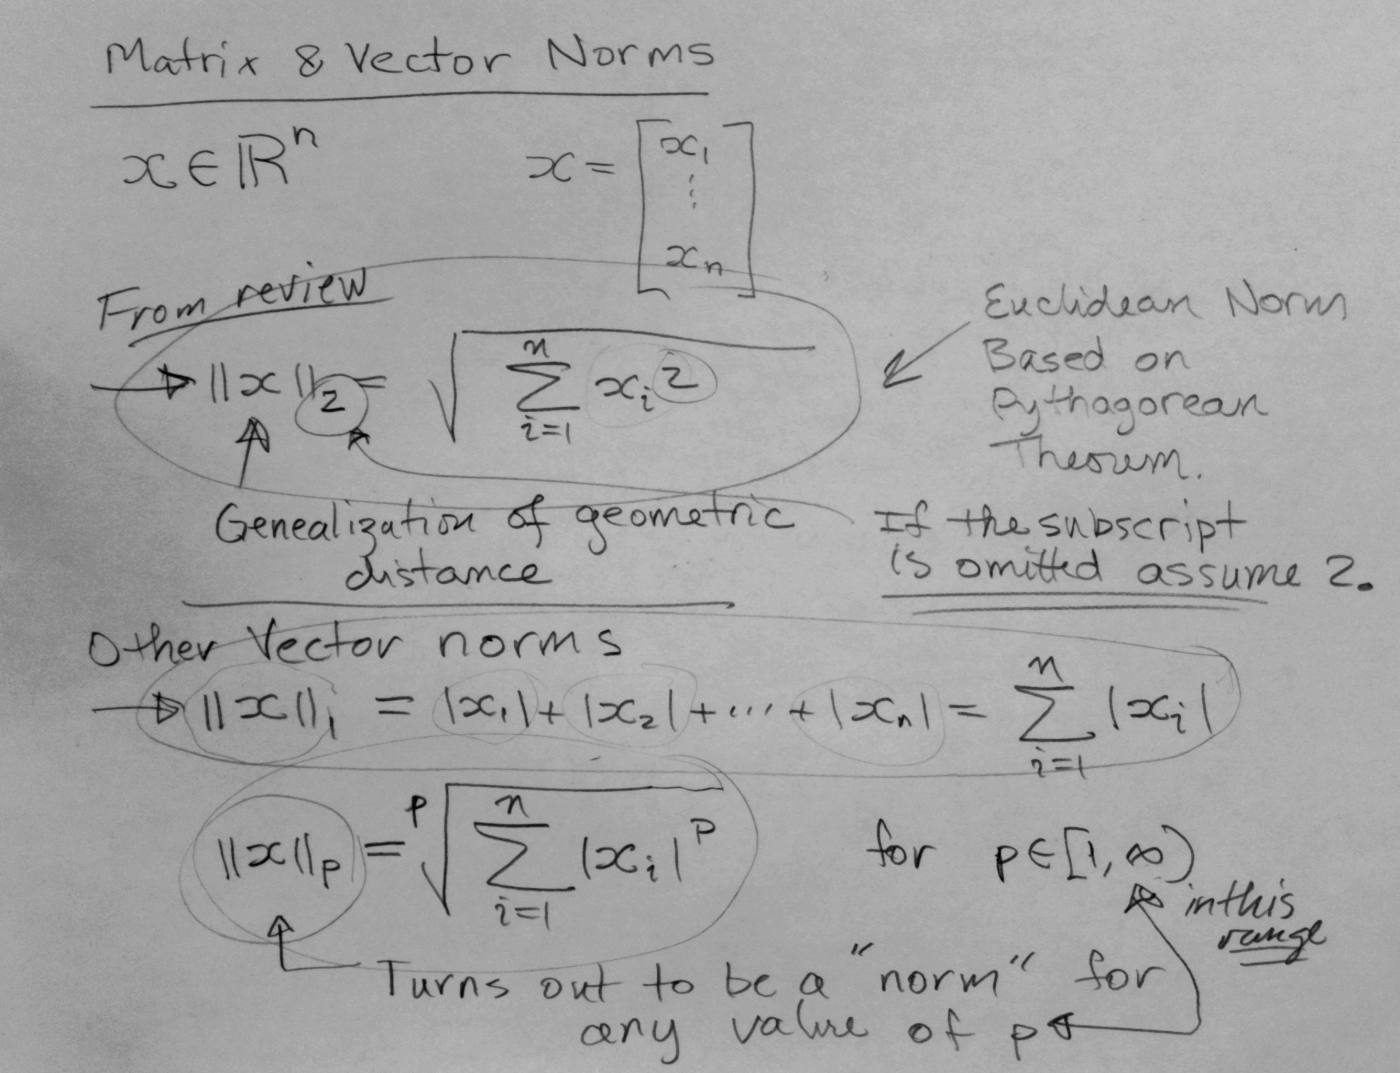 Matrix & Vector Norms
x ∈ ℝⁿ    x = [x₁ ⋮ xₙ]
From review
→ ||x||₂ = √(∑ᵢ₌₁ⁿ xᵢ²)
Euclidean Norm
Based on
Pythagorean
Theorum.
Genealization of geometric
distance
If the subscript
is omitted assume 2.
Other Vector norms
→ ||x||₁ = |x₁| + |x₂| + ⋯ + |xₙ| = ∑ᵢ₌₁ⁿ |xᵢ|
||x||ₚ = ᵖ√(∑ᵢ₌₁ⁿ |xᵢ|ᵖ)    for p ∈ [1, ∞)
in this
range
Turns out to be a "norm" for
any value of p